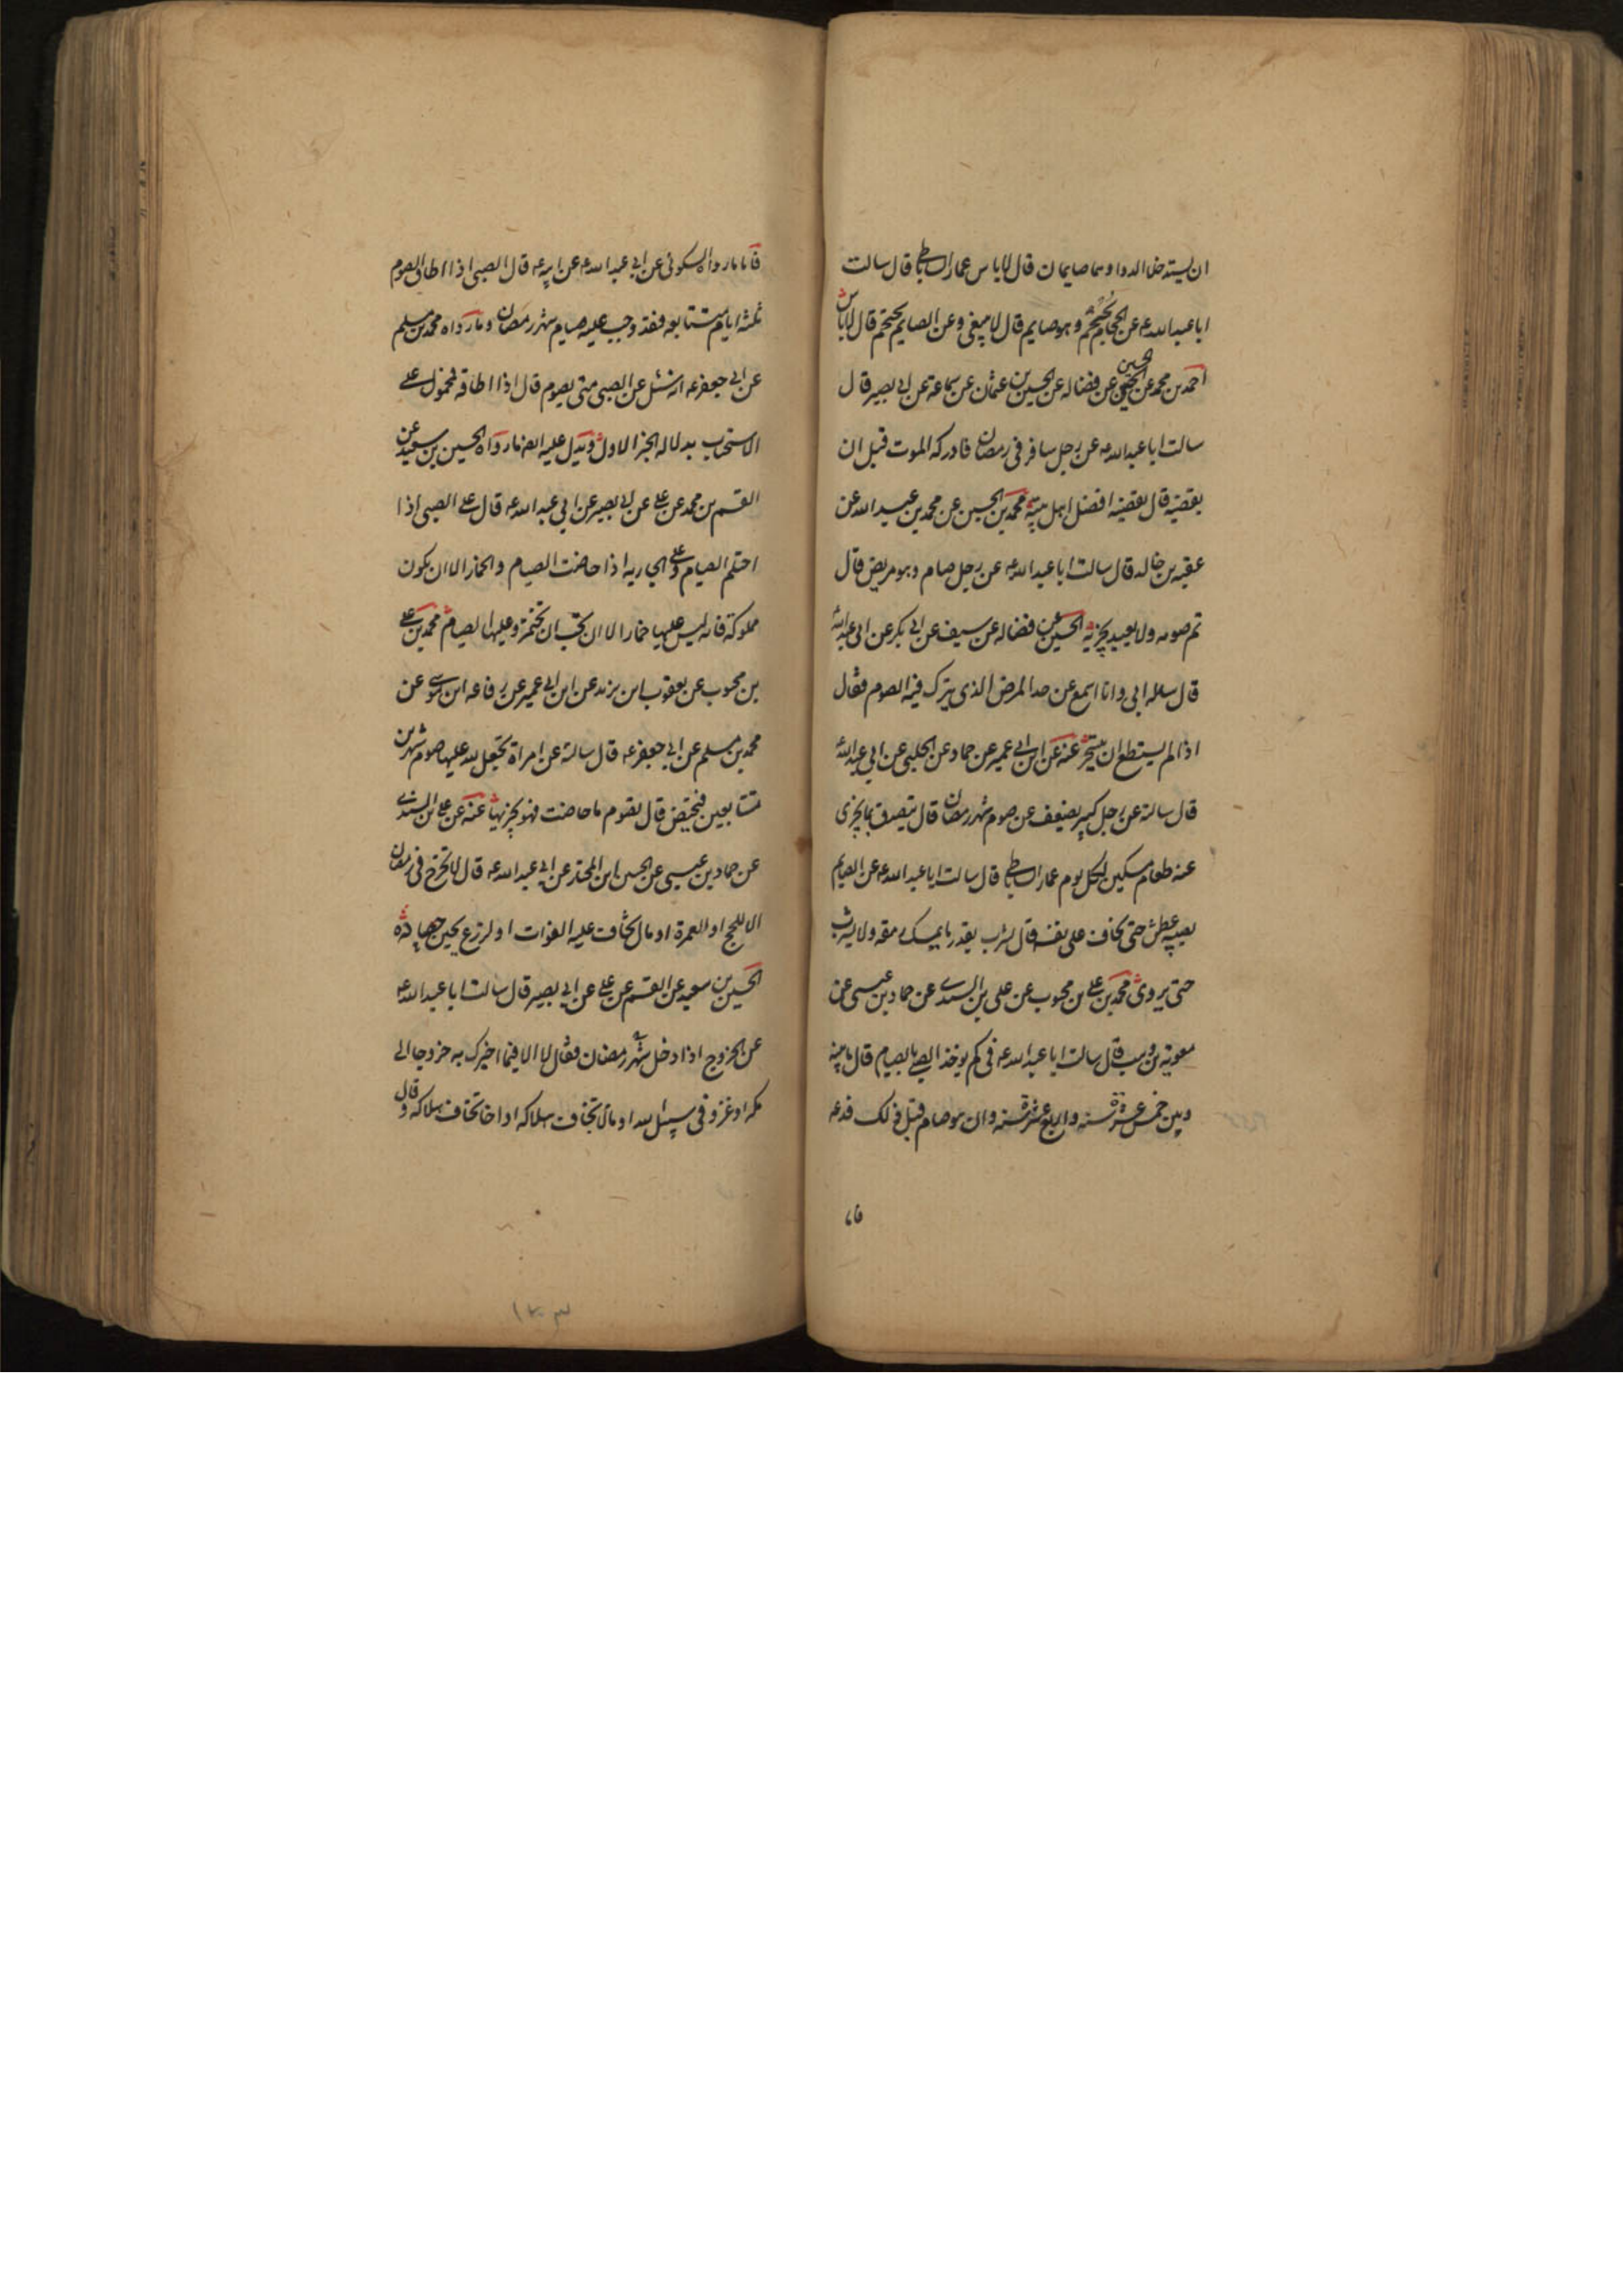 ان يستدخلا الدوا وهما صايمان قال لا باس عمار الساباطي قال سالت
ابا عبد الله ع عن الحجام يحتجم وهو صايم قال لا ينبغي وعن الصايم يحتجم قال لا باس
احمد بن محمد عن الحسين عن فضاله عن الحسين بن عثمان عن سماعة عن ابي بصير قال
سالت ابا عبد الله ع عن رجل سافر في رمضان فادركه الموت قبل ان
يقضيه قال يقضيه افضل اهل بيته محمد بن الحسين عن محمد بن عبد الله عن
عقبه بن خالد قال سالت ابا عبد الله ع عن رجل صام وهو مريض قال
تم صومه ولا يعيد يجزيه الحسين عن فضاله عن سيف عن ابي بكر عن ابي عبد الله
قال ساله ابي وانا اسمع عن حد المرض الذي يترك فيه الصوم فقال
اذا لم يستطع ان يتسحر عنه عن ابن ابي عمير عن حماد عن الحلبي عن ابي عبد الله
قال سالته عن رجل كبير يضعف عن صوم شهر رمضان قال يتصدق بما يجزى
عنه طعام مسكين لكل يوم عمار الساباطي قال سالت ابا عبد الله ع عن الصايم
يصيبه عطش حتى يخاف على نفسه قال يشرب بقدر ما يمسك رمقه ولا يشرب
حتى يروى محمد بن علي بن محبوب عن علي بن السندي عن حماد بن عيسى عن
معويه بن وهب قال سالت ابا عبد الله ع في كم يوخذ الصبي بالصيام قال ما بينه
وبين خمس عشرة سنه واربع عشرة سنه وان هو صام قبل ذلك فدعه
فاما
فاما ما رواه السكوني عن ابي عبد الله ع عن ابيه ع قال الصبي اذا اطاق الصوم
ثلثه ايام متتابعه فقد وجب عليه صيام شهر رمضان وما رواه محمد بن مسلم
عن ابي جعفر ع انه سئل عن الصبي متى يصوم قال اذا اطاقه فمحمول على
الاستحباب بدلاله الخبر الاول ويدل عليه ايضا ما رواه الحسين بن سعيد عن
القسم بن محمد عن علي عن ابي بصير عن ابي عبد الله ع قال على الصبي اذا
احتلم الصيام وعلى الجاريه اذا حاضت الصيام والخمار الا ان يكون
مملوكة فانه ليس عليها خمار الا ان تحب ان تختمر وعليها الصيام محمد بن علي
بن محبوب عن يعقوب ابن يزيد عن ابن ابي عمير عن رفاعه ابن موسى عن
محمد بن مسلم عن ابي جعفر ع قال سالته عن امراة تجعل لله عليها صوم شهرين
متتابعين فتحيض قال تصوم ما حاضت فهو يجزيها عنه عن علي بن السندي
عن حماد بن عيسى عن الحسين ابن المختار عن ابي عبد الله ع قال لا تخرج في رمضان
الا للحج او العمرة او مال تخاف عليه الفوات او لزرع يحين حصاده
الحسين بن سعيد عن القسم عن علي عن ابي بصير قال سالت ابا عبد الله ع
عن الخروج اذا دخل شهر رمضان فقال لا الا فيما اخبرك به خروجا الى
مكه او غزو في سبيل الله او مال تخاف هلاكه او اخا تخاف هلاكه وقال